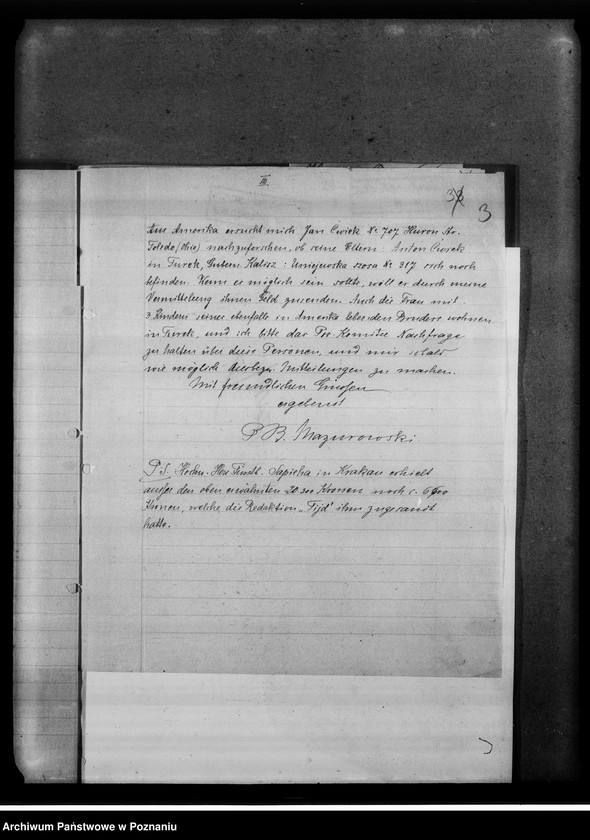 III.
3
Aus Amerika ersucht mich Jan Cwiek No 707 Huron Str.
Toledo (Ohio) nachzuforschen, ob seine Eltern: Anton Cwiek
in Turek, Gubern. Kalisz: Uniejewska szosa No 317 sich noch
befinden. Wenn es möglich sein sollte, woll er durch meine
Vermittelung ihnen Geld zusenden. Auch die Frau mit
3 Kindern seines ebenfalls in Amerika lebenden Bruders wohnen
in Turek, und ich bitte das Pos. Komitee Nachfrage
zu halten über diese Personen, und mir sobald
wie möglich Mitteilungen zu machen.
Mit freundlichen Grüssen
ergebenst
P B. Mazurowski
P.S. Hochw. Herr Fürstb. Sapieha in Krakau erhielt
ausser den oben erwähnten Kronen noch c.
Kronen, welche die Redaktion "Tijd" ihm zugesandt
hatte.
Archiwum Państwowe w Poznaniu